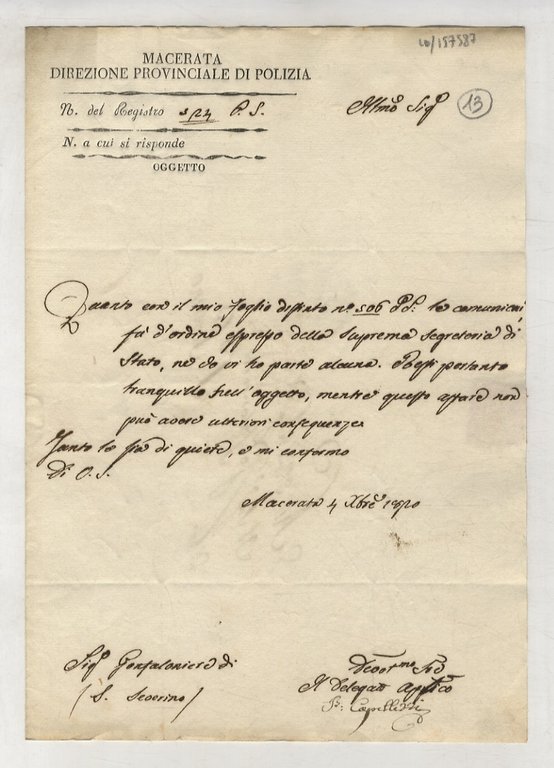 MACERATA
DIREZIONE PROVINCIALE DI POLIZIA
N. del Registro 524 P. S.
N. a cui si risponde
OGGETTO
Illmo Sigr
13
Quanto con il mio foglio distinto no. 506 P. S. le comunicai
fù d'ordine espresso della Suprema Segreteria di
Stato, ne io vi ho parte alcuna. Resti pertanto
tranquillo nell'oggetto, mentre questo affare non
può avere ulteriori conseguenze
Tanto le sia di quiete, e mi confermo
Di V. S.
Macerata 4 Xbre 1820
Sigr Gonfaloniere di
(S. Severino)
Devotmo Sre
Il Delegato Applico